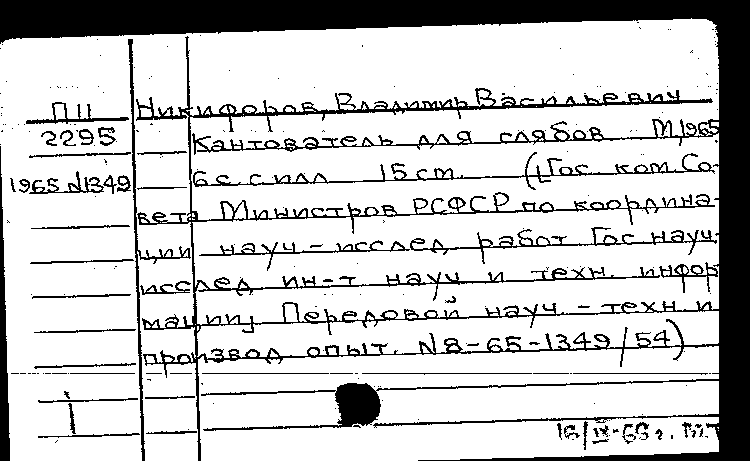 П11 Никифоров, Владимир Васильевич
2295 Кантователь для слябов М, 1965
1965 N1349 6 с. с илл 15 см. (Гос ком. Со-
вета Министров РСФСР по координа-
ции науч-исслед работ Гос науч.
исслед ин-т науч и техн. инфор
мации Передовой науч.-техн и
производ опыт. N 8-65-1349/54)